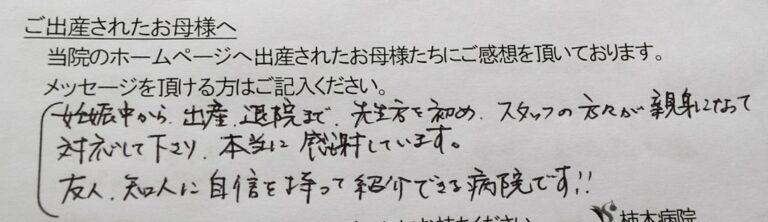 ご出産されたお母様へ
当院のホームページへ出産されたお母様たちにご感想を頂いております。
メッセージを頂ける方はご記入ください。
妊娠中から、出産、退院まで、先生方を初め、スタッフの方々が親身になって
対応して下さり、本当に感謝しています。
友人、知人に自信を持って紹介できる病院です!!
柿木病院